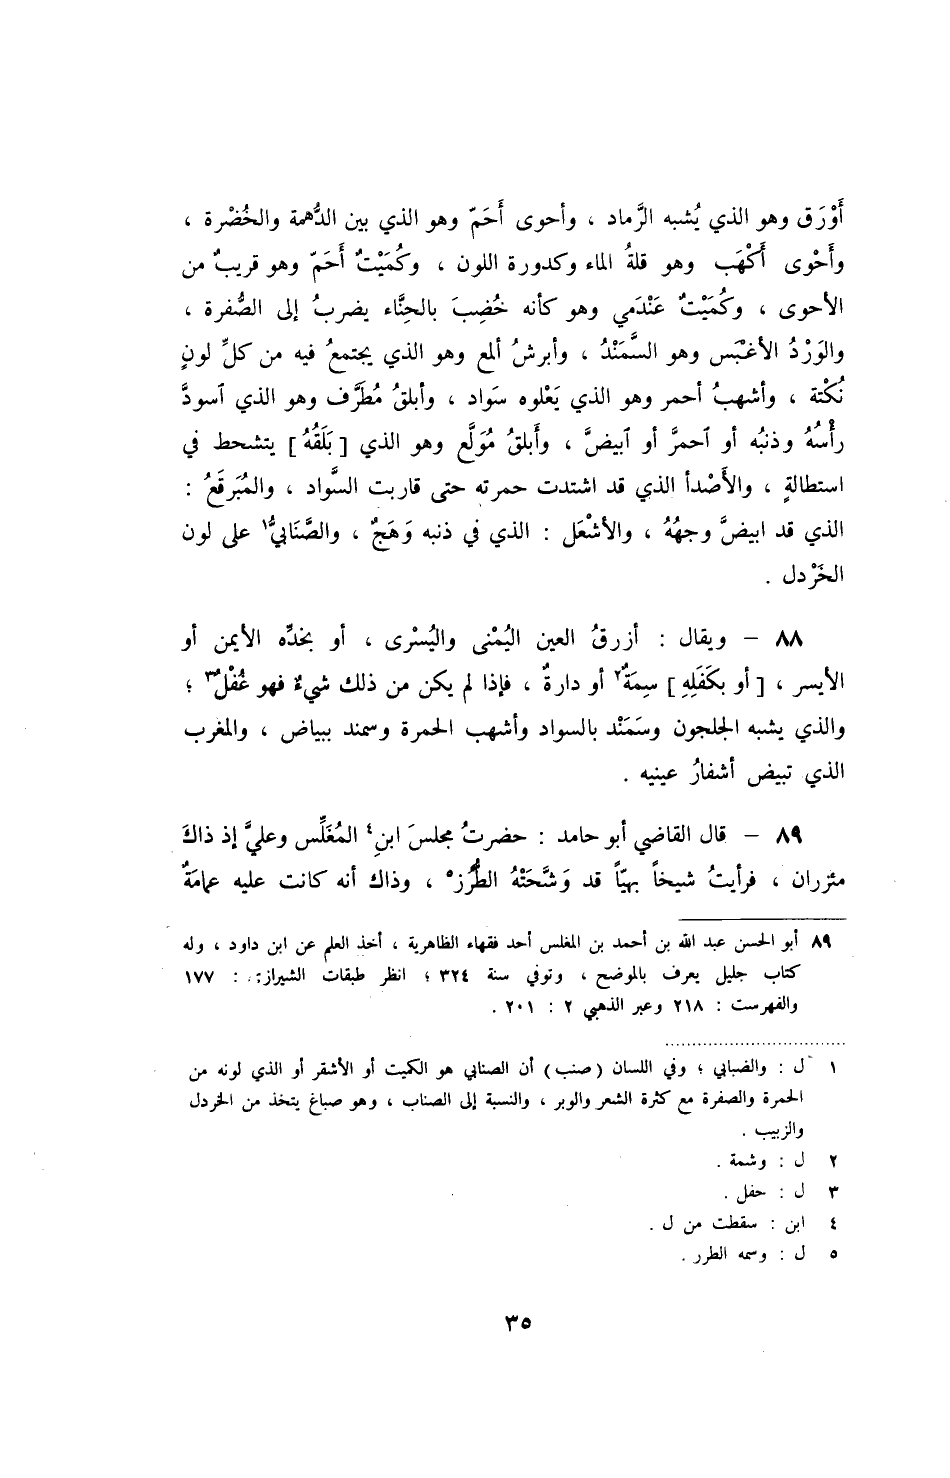 أَوْرَق وهو الذي يُشبه الرَّماد ، وأحوى أَحَمّ وهو الذي بين الدُّهمة والخُضْرة ،
وأَحْوى أَكْهَب وهو قلةُ الماء وكدورة اللون ، وكُمَيْتٌ أَحَمّ وهو قريبٌ من
الأحوى ، وكُمَيْتٌ عَنْدَمي وهو كأنه خُضِبَ بالحِنَّاء يضربُ إلى الصُّفرة ،
والوَرْدُ الأغْبَس وهو السَّمَنْدُ ، وأبرشُ ألمع وهو الذي يجتمعُ فيه من كلِّ لونٍ
نُكْتة ، وأشهبُ أحمر وهو الذي يَعْلوه سَواد ، وأبلقُ مُطَرَّف وهو الذي ٱسودَّ
رأْسُهُ وذنبُه أو ٱحمرَّ أو ٱبيضَّ ، وأَبلقُ مُوَلَّع وهو الذي [ بَلَقُهُ ] يتشحط في
استطالةٍ ، والأَصْدأ الذي قد اشتدت حمرته حتى قاربت السَّواد ، والمُبَرقَعُ :
الذي قد ابيضَّ وجهُهُ ، والأشْعَل : الذي في ذنبه وَهَجٌ ، والصَّنَابيُّ١ على لون
الخَرْدل .
٨٨ – ويقال : أزرقُ العين اليُمْنى واليُسْرى ، أو بخدِّه الأيمن أو
الأيسر ، [ أو بكَفَلِهِ ] سِمَةٌ٢ أو دارةٌ ، فإذا لم يكن من ذلك شيءٌ فهو غُفْلٌ٣ ؛
والذي يشبه الجلجون وسَمَنْد بالسواد وأشهب الحمرة وسمند ببياض ، والمغرب
الذي تبيض أشفارُ عينيه .
٨٩ – قال القاضي أبو حامد : حضرتُ مجلسَ ابنِ٤ المُغَلِّس وعليَّ إذ ذاكَ
مئزران ، فرأيتُ شيخاً بهيّاً قد وَشَّحَتْهُ الطُّرُز٥ ، وذاك أنه كانت عليه عمامَةٌ
٨٩ أبو الحسن عبد الله بن أحمد بن المغلس أحد فقهاء الظاهرية ، أخذ العلم عن ابن داود ، وله
كتاب جليل يعرف بالموضح ، وتوفي سنة ٣٢٤ ؛ انظر طبقات الشيرازي : ١٧٧
والفهرست : ٢١٨ وعبر الذهبي ٢ : ٢٠١ .
١ ل : والضبابي ؛ وفي اللسان ( صنب ) أن الصنابي هو الكميت أو الأشقر أو الذي لونه من
الحمرة والصفرة مع كثرة الشعر والوبر ، والنسبة إلى الصناب ، وهو صباغ يتخذ من الخردل
والزبيب .
٢ ل : وشمة .
٣ ل : حفل .
٤ ابن : سقطت من ل .
٥ ل : وسمه الطرر .
٣٥